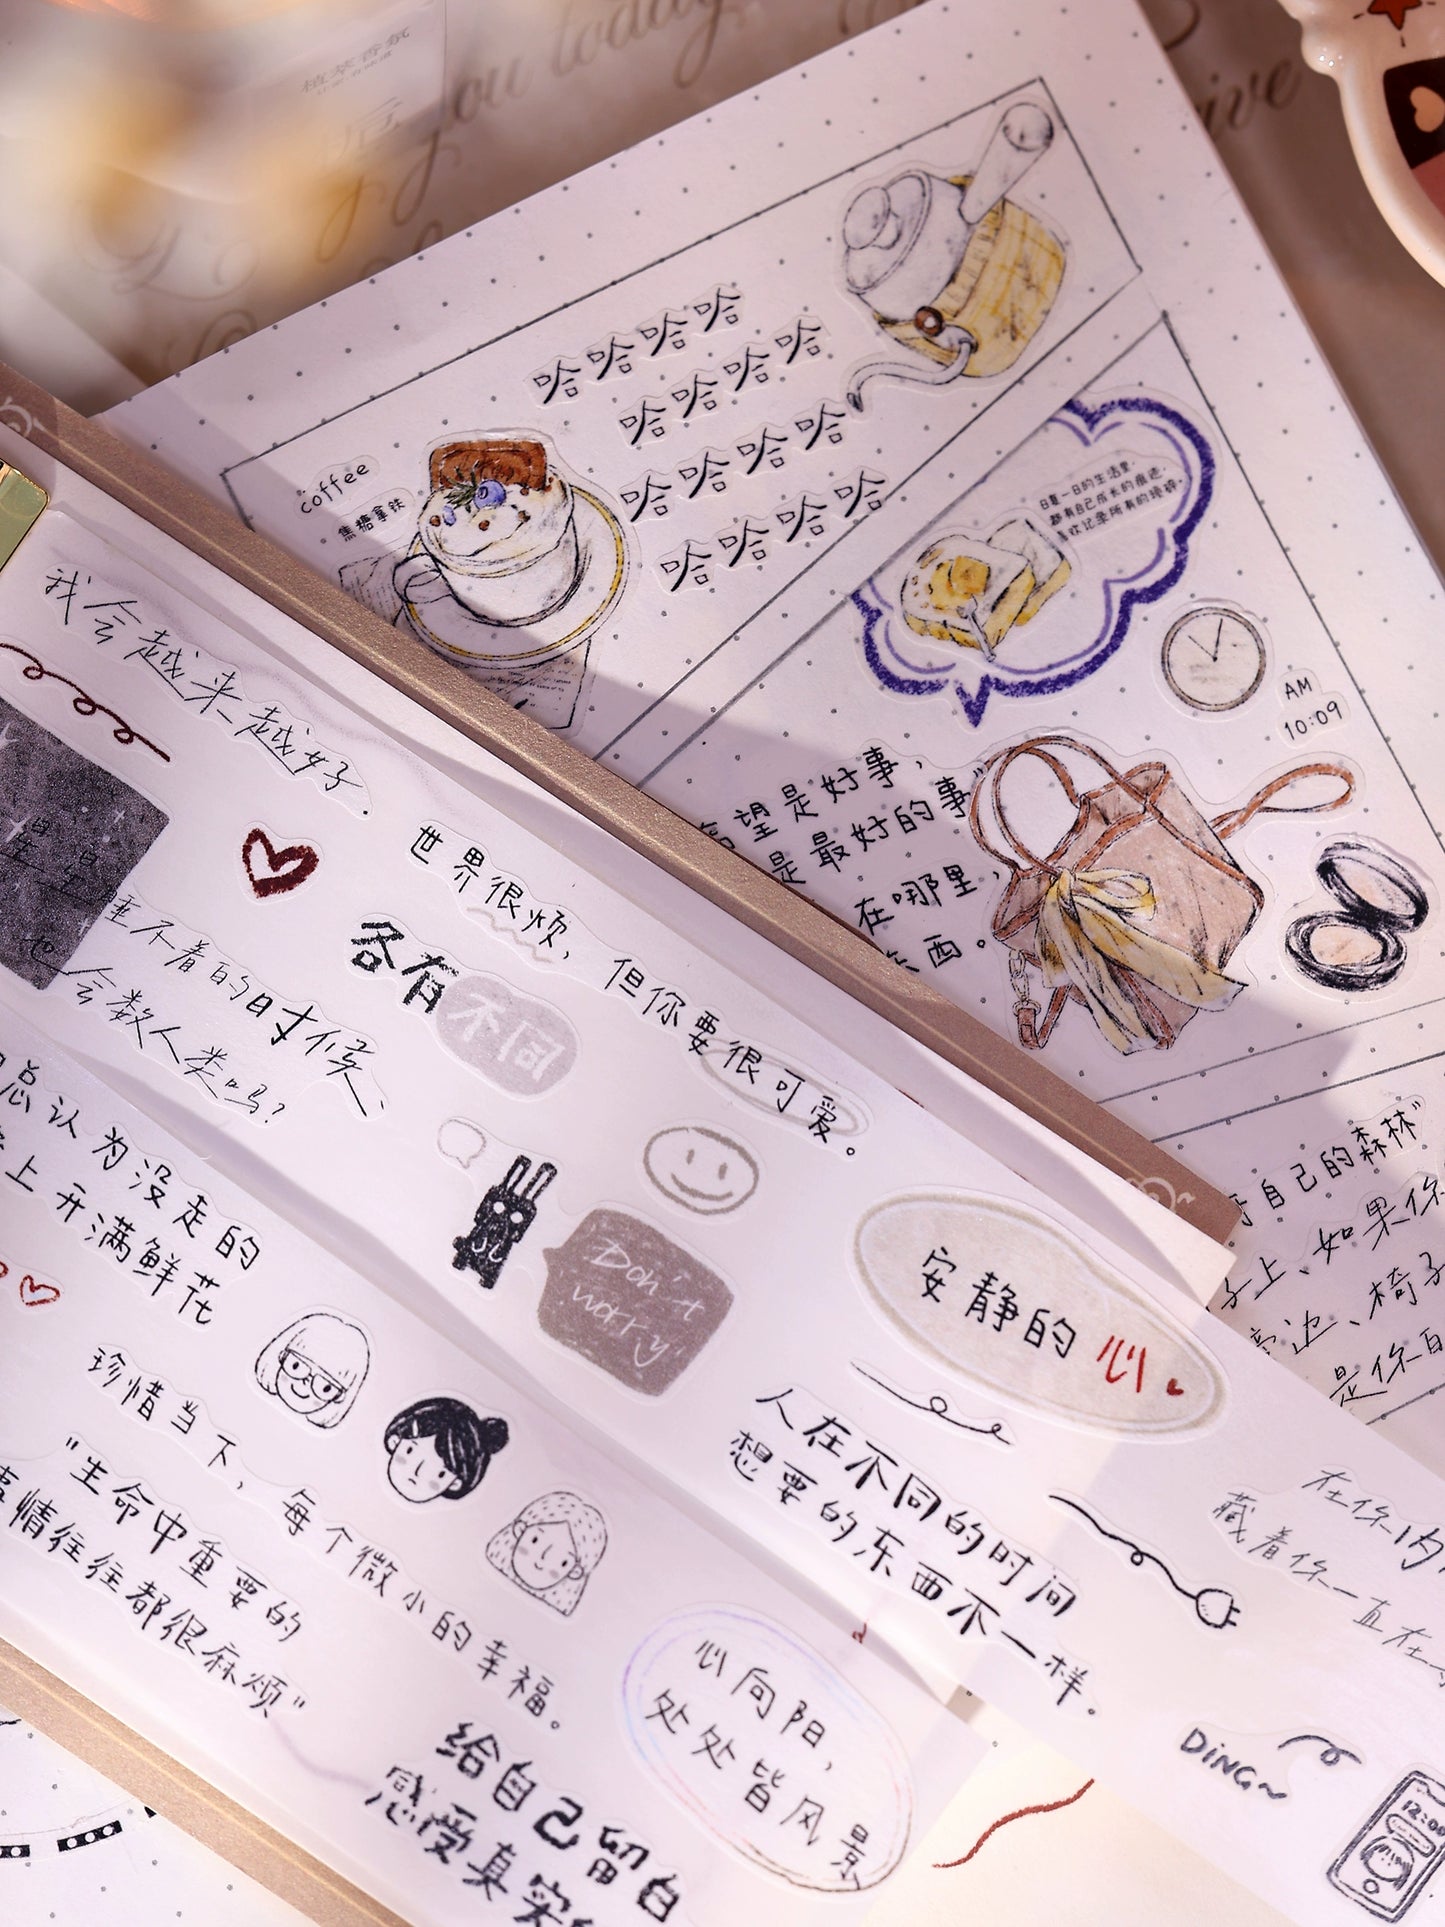 植萃香氛
you today
coffee
焦糖拿铁
哈哈哈哈
哈哈哈哈
哈哈哈哈
哈哈哈哈
日复一日的生活里，
都有自己成长的痕迹，
喜欢记录所有的琐碎。
AM
10:09
望是好事，
是最好的事”
在哪里，
东西。
自己的森林”
子上、如果你
旁边、椅子
是你自
我会越来越好.
星星
睡不着的时候、
也会数人类吗？
世界很烦，但你要很可爱。
各有不同
总认为没走的
上开满鲜花
Don't
worry
安静的心
人在不同的时间
想要的东西不一样。
珍惜当下，每个微小的幸福。
“生命中重要的
事情往往都很麻烦”
心向阳，
处处皆风景
给自己留白
感受真实
在你内
藏着你一直在
DiNG~
12:00